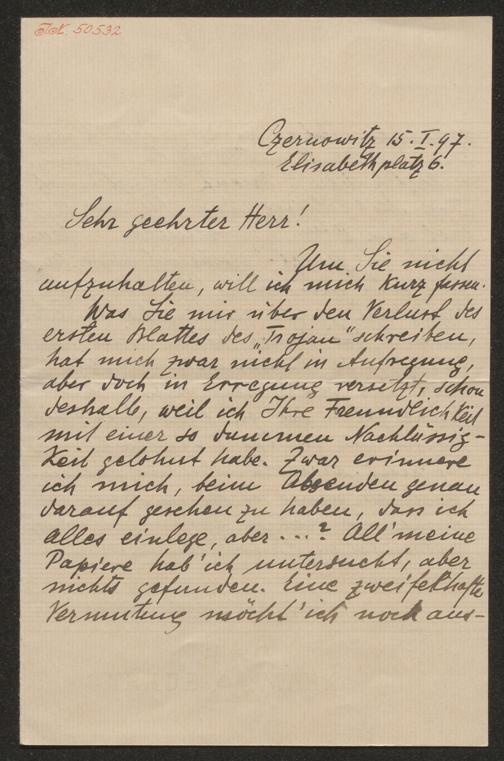 50.532
Czernowitz 15. I. 97.
Elisabethplatz 6.
Sehr geehrter Herr!
Um Sie nicht
aufzuhalten, will ich mich kurz fassen.
Was Sie mir über den Verlust des
ersten Blattes des „Trojan" schreiben,
hat mich zwar nicht in Aufregung,
aber doch in Erregung versetzt, schon
deshalb, weil ich Ihre Freundlichkeit
mit einer so dummen Nachlässig-
keit gelohnt habe. Zwar erinnere
ich mich, beim Absenden genau
darauf gesehen zu haben, dass ich
alles einlege, aber . . . ? All' meine
Papiere hab' ich untersucht, aber
nichts gefunden. Eine zweifelhafte
Vermutung möcht' ich noch aus-